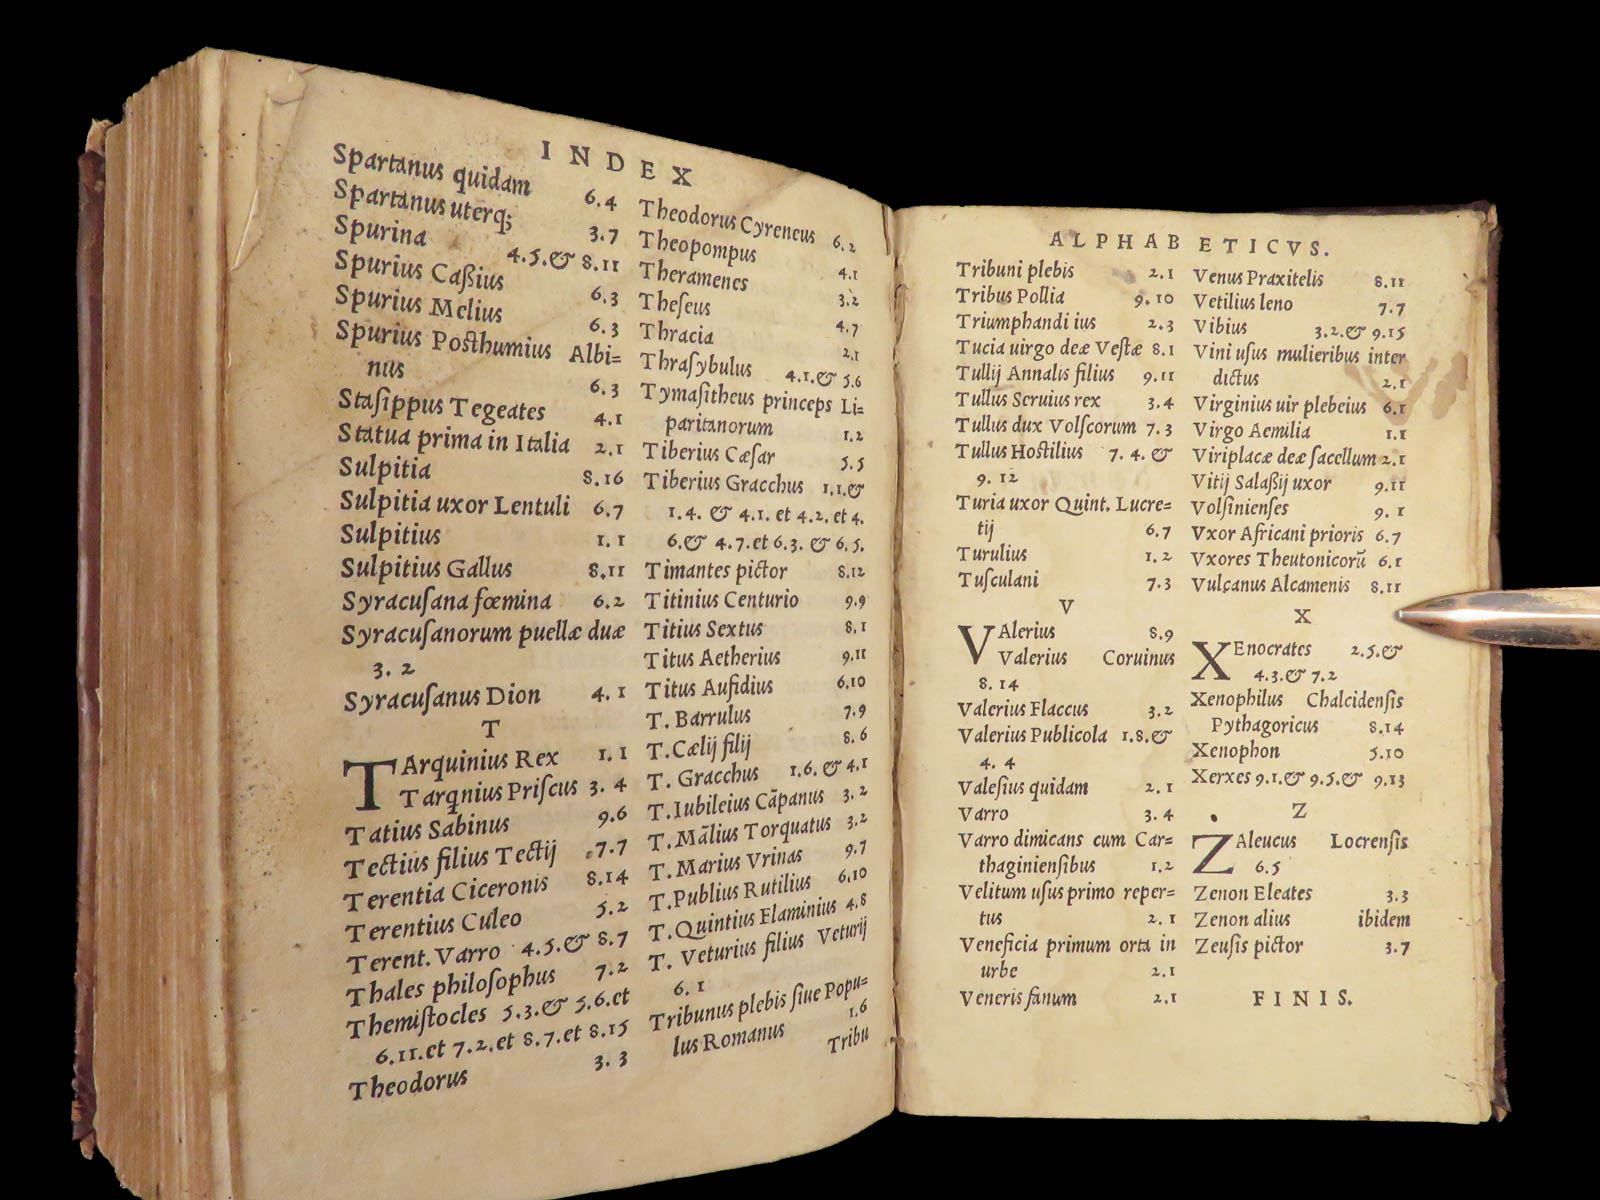 INDEX
Spartanus quidam 6.4
Spartanus uterq; 3.7
Spurina 4.5.& 8.11
Spurius Caßius 6.3
Spurius Melius 6.3
Spurius Posthumius Albi=
nus 6.3
Staſippus Tegeates 4.1
Statua prima in Italia 2.1
Sulpitia 8.16
Sulpitia uxor Lentuli 6.7
Sulpitius 1.1
Sulpitius Gallus 8.11
Syracuſana fœmina 6.2
Syracuſanorum puellæ duæ
3.2
Syracuſanus Dion 4.1
T
TArquinius Rex 1.1
Tarqnius Priſcus 3.4
Tatius Sabinus 9.6
Tectius filius Tectij 7.7
Terentia Ciceronis 8.14
Terentius Culeo 5.2
Terent. Varro 4.5.& 8.7
Thales philoſophus 7.2
Themiſtocles 5.3.& 5.6.et
6.11.et 7.2.et 8.7.et 8.15
Theodorus 3.3
Theodorus Cyreneus 6.2
Theopompus 4.1
Theramenes 3.2
Theſeus 4.7
Thracia 2.1
Thraſybulus 4.1.& 5.6
Tymaſitheus princeps Li=
paritanorum 1.2
Tiberius Cæſar 5.5
Tiberius Gracchus 1.1.&
1.4. & 4.1. et 4.2. et 4.
6.& 4.7.et 6.3. & 6.5.
Timantes pictor 8.12
Titinius Centurio 9.9
Titius Sextus 8.1
Titus Aetherius 9.11
Titus Aufidius 6.10
T. Barrulus 7.9
T. Cælij filij 8.6
T. Gracchus 1.6. & 4.1
T. Iubileius Cāpanus 3.2
T. Māl­ius Torquatus 3.2
T. Marius Vrinas 9.7
T. Publius Rutilius 6.10
T. Quintius Flaminius 4.8
T. Veturius filius Veturij
6.1
Tribunus plebis ſiue Popu=
lus Romanus 1.6
Tribu
ALPHABETICVS.
Tribuni plebis 2.1
Tribus Pollia 9.10
Triumphandi ius 2.3
Tucia uirgo deæ Veſtæ 8.1
Tullij Annalis filius 9.11
Tullus Seruius rex 3.4
Tullus dux Volſcorum 7.3
Tullus Hoſtilius 7.4. &
9.12
Turia uxor Quint. Lucre=
tij 6.7
Turulius 1.2
Tuſculani 7.3
V
VAlerius 8.9
Valerius Coruinus
8.14
Valerius Flaccus 3.2
Valerius Publicola 1.8.&
4.4
Valeſius quidam 2.1
Varro 3.4
Varro dimicans cum Car=
thaginienſibus 1.2
Velitum uſus primo reper=
tus 2.1
Veneficia primum orta in
urbe 2.1
Veneris fanum 2.1
Venus Praxitelis 8.11
Vetilius leno 7.7
Vibius 3.2.& 9.15
Vini uſus mulieribus inter
dictus 2.1
Virginius uir plebeius 6.1
Virgo Aemilia 1.1
Viriplacæ deæ ſacellum 2.1
Vitij Salaßij uxor 9.11
Volſinienſes 9.1
Vxor Africani prioris 6.7
Vxores Theutonicorū 6.1
Vulcanus Alcamenis 8.11
X
XEnocrates 2.5.&
4.3.& 7.2
Xenophilus Chalcidenſis
Pythagoricus 8.14
Xenophon 5.10
Xerxes 9.1.& 9.5.& 9.13
Z
ZAleucus Locrenſis
6.5
Zenon Eleates 3.3
Zenon alius ibidem
Zeuſis pictor 3.7
FINIS.